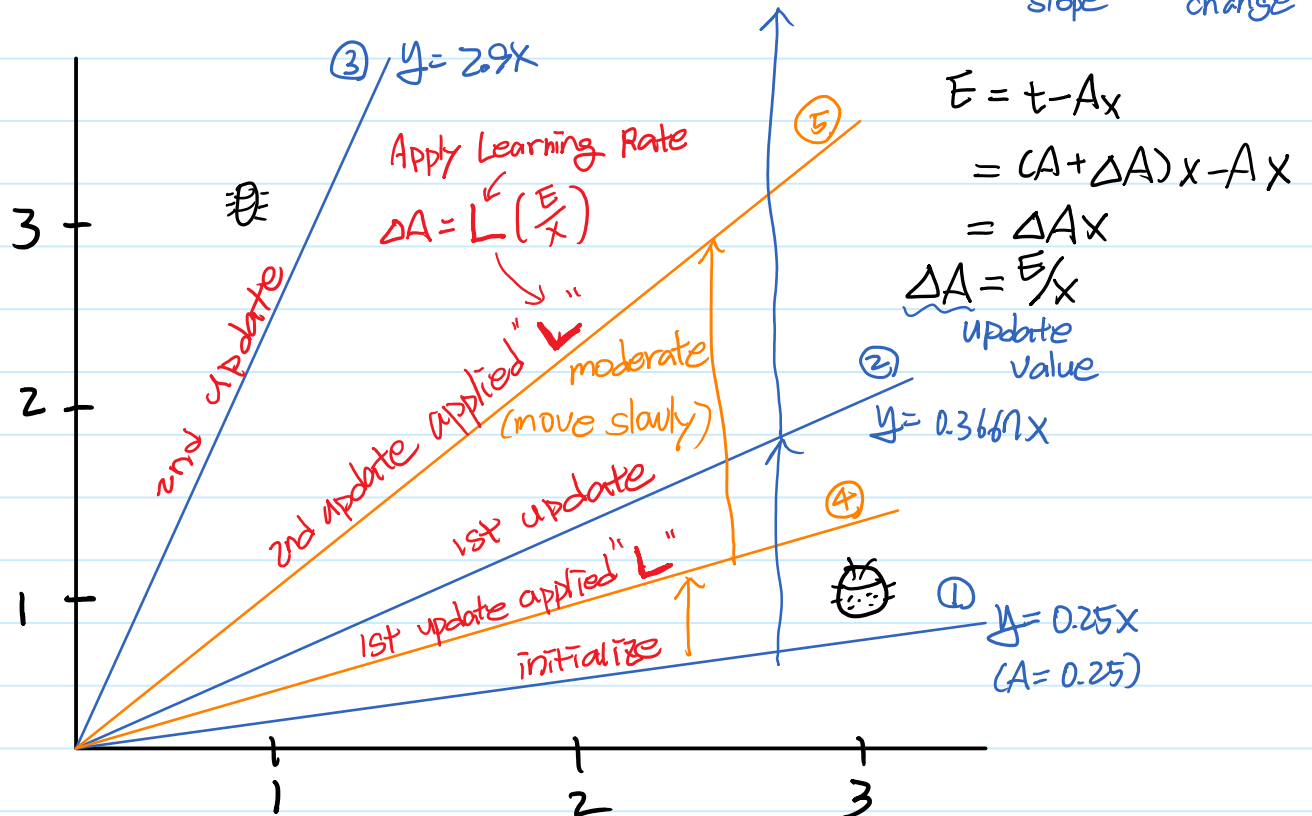 slope change
③ y = 2.9x
Apply Learning Rate
ΔA = L (E/x)
E = t - Ax
= (A + ΔA)x - Ax
= ΔAx
ΔA = E/x
update
value
⑤
3
2nd update
2nd update applied "L"
moderate
(move slowly)
②
y = 0.3667x
2
1st update
④
1st update applied "L"
1
①
y = 0.25x
(A = 0.25)
initialize
1 2 3